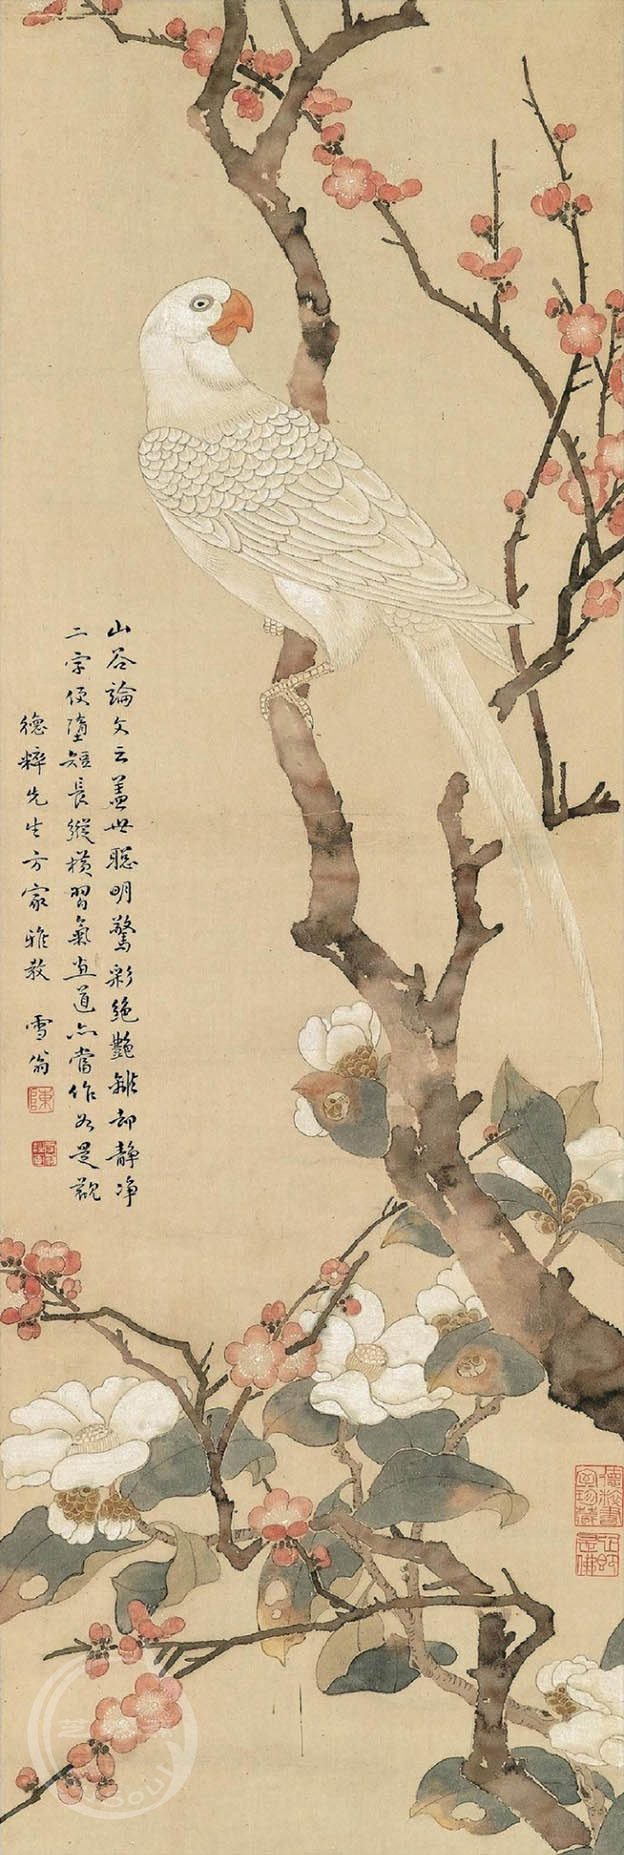 山谷論文云蓋世聰明驚彩絕艷離却靜净
二字便墮短長縱橫習氣直道亦當作如是觀
德粹先生方家雅教 雪翁
陳